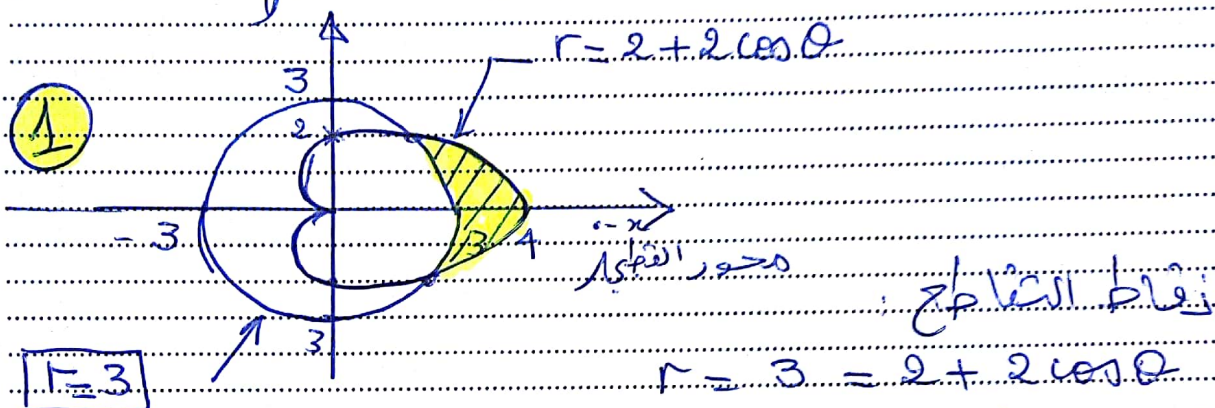 y
r = 2 + 2 cos θ
3
1
2
-3
3
4
x
محور القطبي
نقاط التقاطع :
3
r = 3
r = 3 = 2 + 2 cos θ